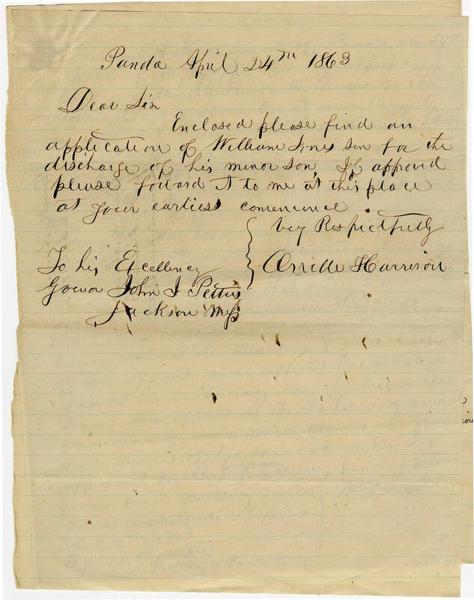 Panola April 24th 1863
Dear Sir
Enclosed please find an
application of William Jones son for the
discharge of his minor son, If approvd
please forward it to me at this place
at your earliest convenience
Very Respectfully
Harrison
To his Excellency
Govenor John J Pettus
Jackson Miss